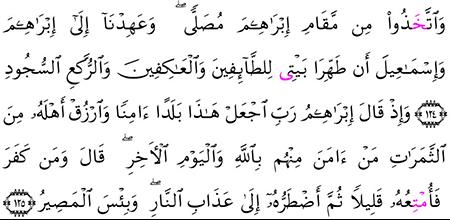 وَٱتَّخَذُوا۟ مِن مَّقَامِ إِبْرَٰهِـمَ مُصَلًّى ۖ وَعَهِدْنَآ إِلَىٰٓ إِبْرَٰهِـمَ
وَإِسْمَـٰعِيلَ أَن طَهِّرَا بَيْتِى لِلطَّآئِفِينَ وَٱلْعَـٰكِفِينَ وَٱلرُّكَّعِ ٱلسُّجُودِ
﴿١٢٤﴾ وَإِذْ قَالَ إِبْرَٰهِـمُ رَبِّ ٱجْعَلْ هَـٰذَا بَلَدًا ءَامِنًا وَٱرْزُقْ أَهْلَهُۥ مِنَ
ٱلثَّمَرَٰتِ مَنْ ءَامَنَ مِنْهُم بِٱللَّهِ وَٱلْيَوْمِ ٱلْأَخِرِ ۖ قَالَ وَمَن كَفَرَ
فَأُمْتِعُهُۥ قَلِيلًا ثُمَّ أَضْطَرُّهُۥٓ إِلَىٰ عَذَابِ ٱلنَّارِ ۖ وَبِئْسَ ٱلْمَصِيرُ ﴿١٢٥﴾